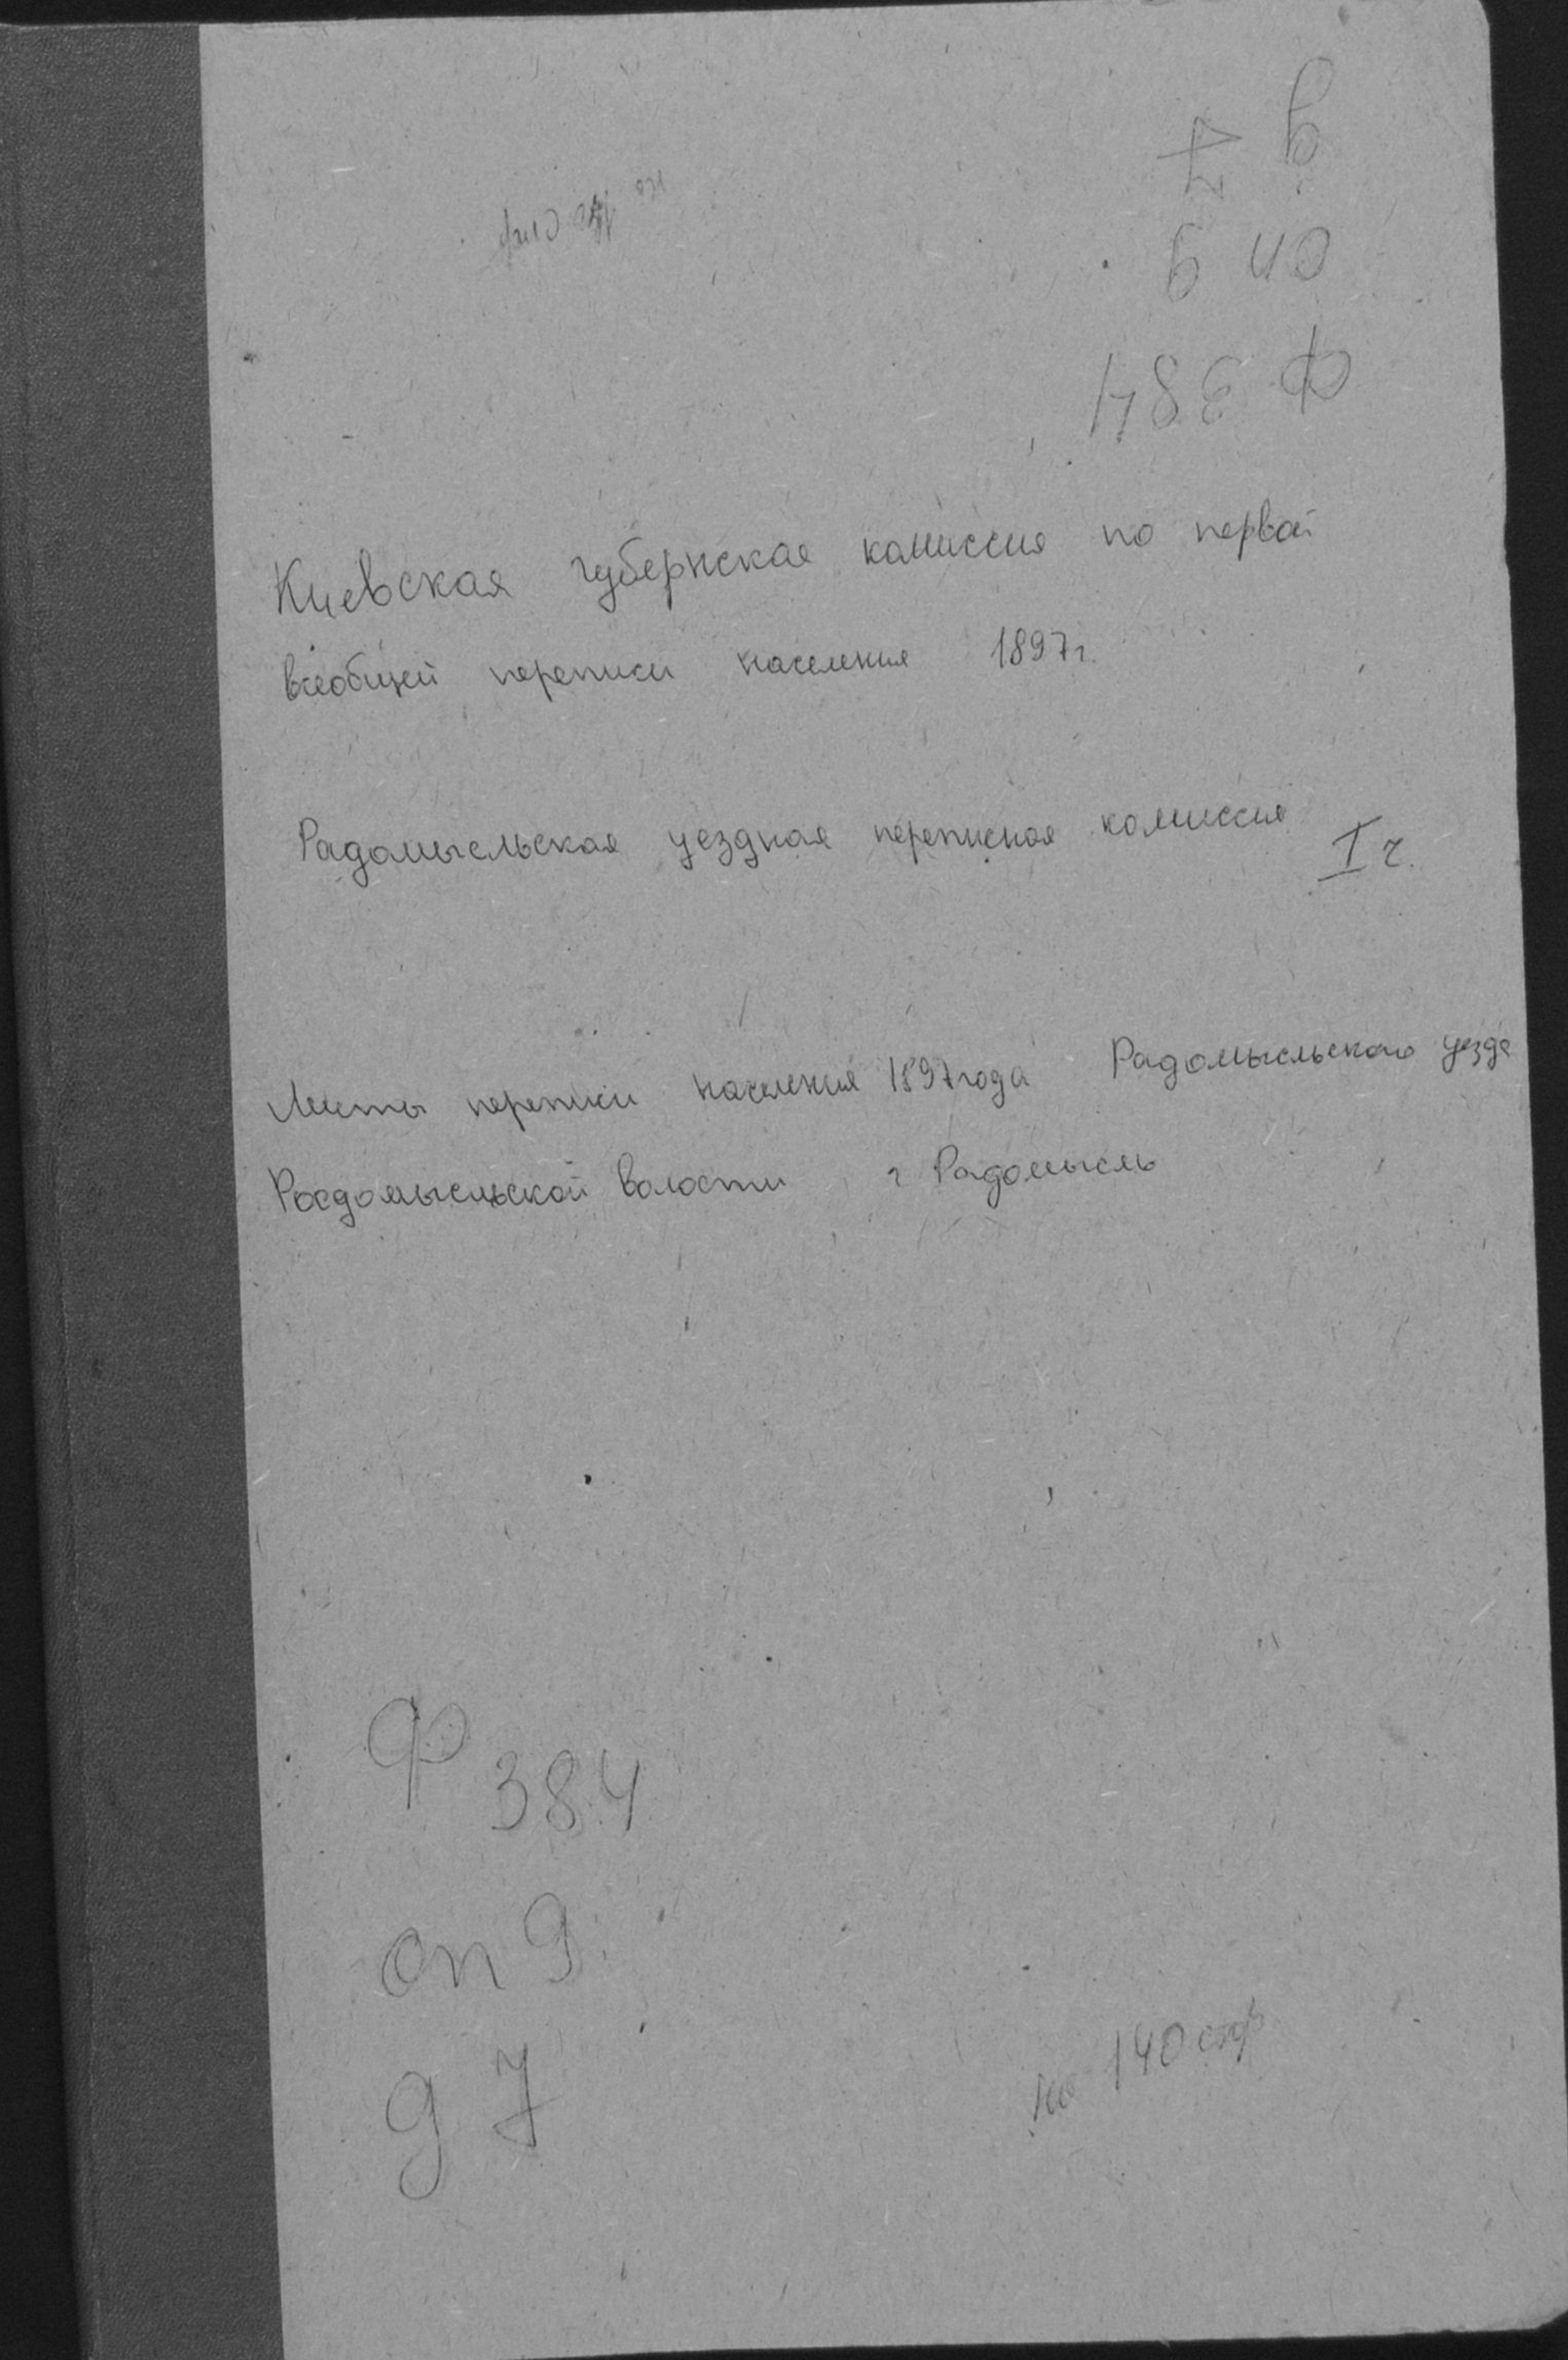 д 7
оп 9
Ф 384
Киевская губернская комиссия по первой
всеобщей переписи населения 1897г.
Радомысльская уездная переписная комиссия I ч.
Листы переписи населения 1897 года Радомысльского уезда
Радомысльской волости г Радомысль
Ф 384
оп 9
д 7
на 140 стр